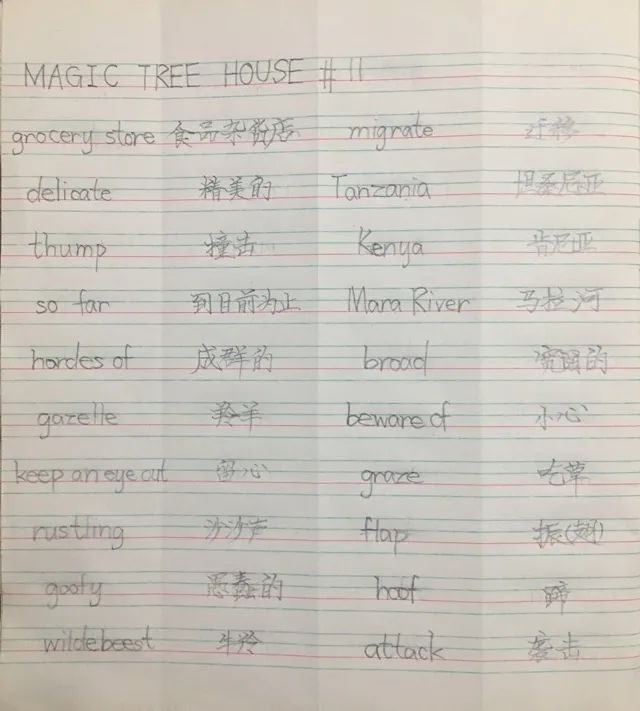 MAGIC TREE HOUSE #11
grocery store 食品杂货店 migrate 迁移
delicate 精美的 Tanzania 坦桑尼亚
thump 撞击 Kenya 肯尼亚
so far 到目前为止 Mara River 马拉河
hordes of 成群的 broad 宽阔的
gazelle 羚羊 beware of 小心
keep an eye out 留心 graze 吃草
rustling 沙沙声 flap 振(翅)
goofy 愚蠢的 hoof 蹄
wildebeest 牛羚 attack 袭击